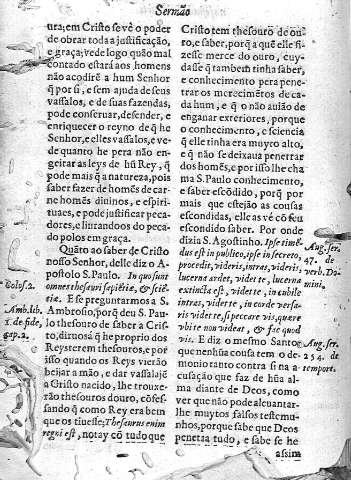 Sermão
ura; em Cristo se vè o poder
de obrar toda a justificação,
e graça; vede logo quão mal
contado estará aos homens
não acodirẽ a hum Senhor
q̃ por si, e sem ajuda de seus
vassalos, e de suas fazendas,
pode conseruar, defender, e
enriquecer o reyno de q̃ he
Senhor, e elles vassalos, e ve-
de quanto he pera não en-
geitar as leys de hũ Rey, q̃
pode mais q̃ a natureza, pois
saber fazer de homẽs de car-
ne homẽs diuinos, e espiri-
tuaes, e pode justificar pecca-
dores, e liurandoos do pecca-
do polos em graça.
Quãto ao saber de Cristo
nosso Senhor, delle diz o A-
postolo S. Paulo. In quo sunt
omnes thesauri sapiẽtiæ, & sciẽ-
tiæ. E se preguntarmos a S.
Ambrosio, porq̃ deu S. Pau-
lo thesouro de saber a Cris-
to, diruosá q̃ he proprio dos
Reys terem thesouros, e por
isso quando os Reys vierão
beijar a mão, e dar vassalajẽ
a Cristo nacido, lhe trouxe-
rão thesouros douro, cõfes-
sando q̃ como Rey era bem
que os tiuesse; Thesaurus enim
regni est, notay cõ tudo que
Colos. 2.
Amb. lib.
1. de fide,
cap. 2.
Cristo tem thesouro de ou-
ro, e saber, porq̃ a quẽ elle fi-
zesse merce do ouro, cuy-
dasse q̃ tambem tinha saber,
e conhecimento pera pene-
trar os merecimẽtos de ca-
da hum, e q̃ o não auião de
enganar exteriores, porque
o conhecimento, e sciencia
q̃ elle tinha era muyto alto,
e q̃ não se deixaua penetrar
dos homẽs, e por isso lhe cha
ma S. Paulo conhecimento,
e saber escõdido, porq̃ por
mais que estejão as cousas
escondidas, elle as vé cõ seu
escondido saber. Por onde
dizia S. Agostinho. Ipse timẽ-
dus est in publico, ipse in secreto,
procedis, videris, intras, videris,
lucerna ardet, videt te, lucerna
extincta est, videt te, in cubile
intras, videt te, in corde versa-
ris videt te, si peccare vis, quære
vbi te non videat, & fac quod
vis. E diz o mesmo Santo
que nenhũa cousa tem o de-
monio tanto contra si na a
cusação que faz de hũa al-
ma diante de Deos, como
ver que não pode aleuantar-
lhe muytos falsos testemu-
nhos, porque sabe que Deos
penetra tudo, e sabe se he
assim
Aug. ser.
47. de
verb. Do-
mini,
Aug. ser.
254. de
tempore.